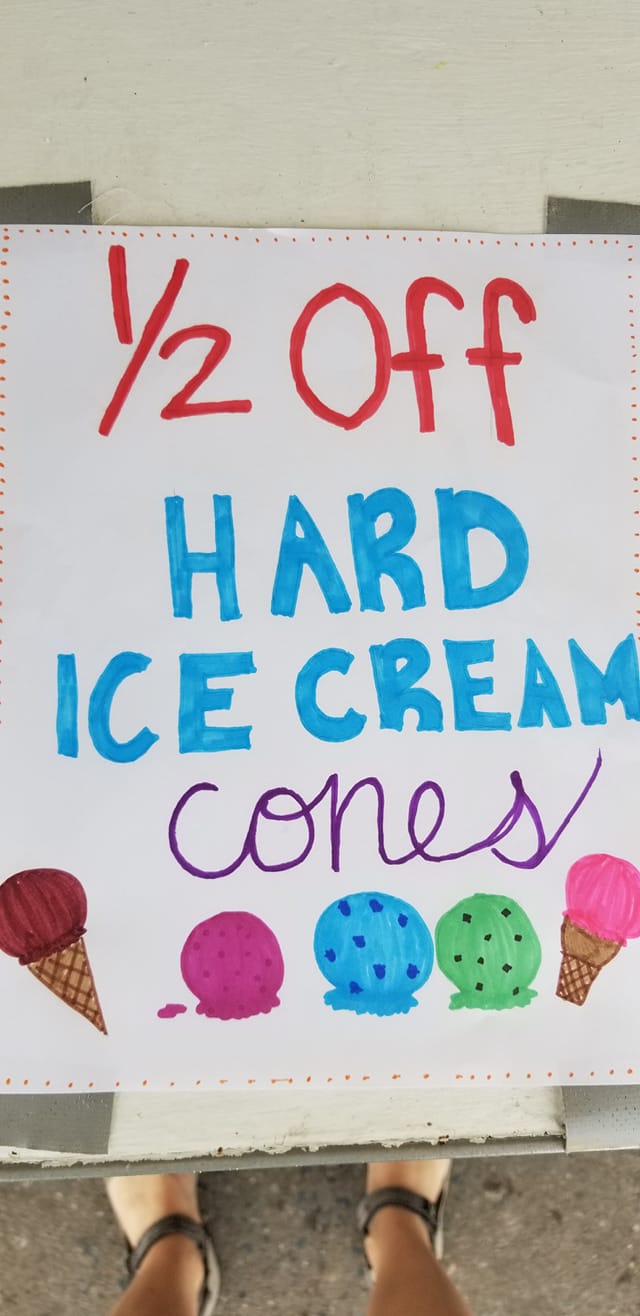 1/2 Off
HARD
ICE CREAM
cones